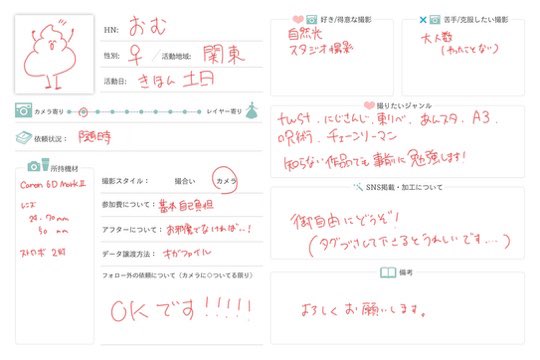 HN: おむ
性別: ♀ / 活動地域: 関東
活動日: きほん 土日
カメラ寄り レイヤー寄り
依頼状況: 随時
所持機材
Canon 6D MarkⅡ
レンズ
24-70mm
50mm
ストロボ 2灯
撮影スタイル: 撮合い カメラ
参加費について: 基本自己負担
アフターについて: お邪魔でなければ…!
データ譲渡方法: ギガファイル
フォロー外の依頼について(カメラに○ついてる限り)
OKです!!!!!
好き/得意な撮影
自然光
スタジオ撮影
苦手/克服したい撮影
大人数
(やったことない)
撮りたいジャンル
twst.にじさんじ.東リベ.あんスタ.A3.
呪術.チェーンソーマン
知らない作品でも事前に勉強します!
SNS掲載・加工について
御自由にどうぞ!
(タグづけして下さるとうれしいです….)
備考
よろしくお願いします。